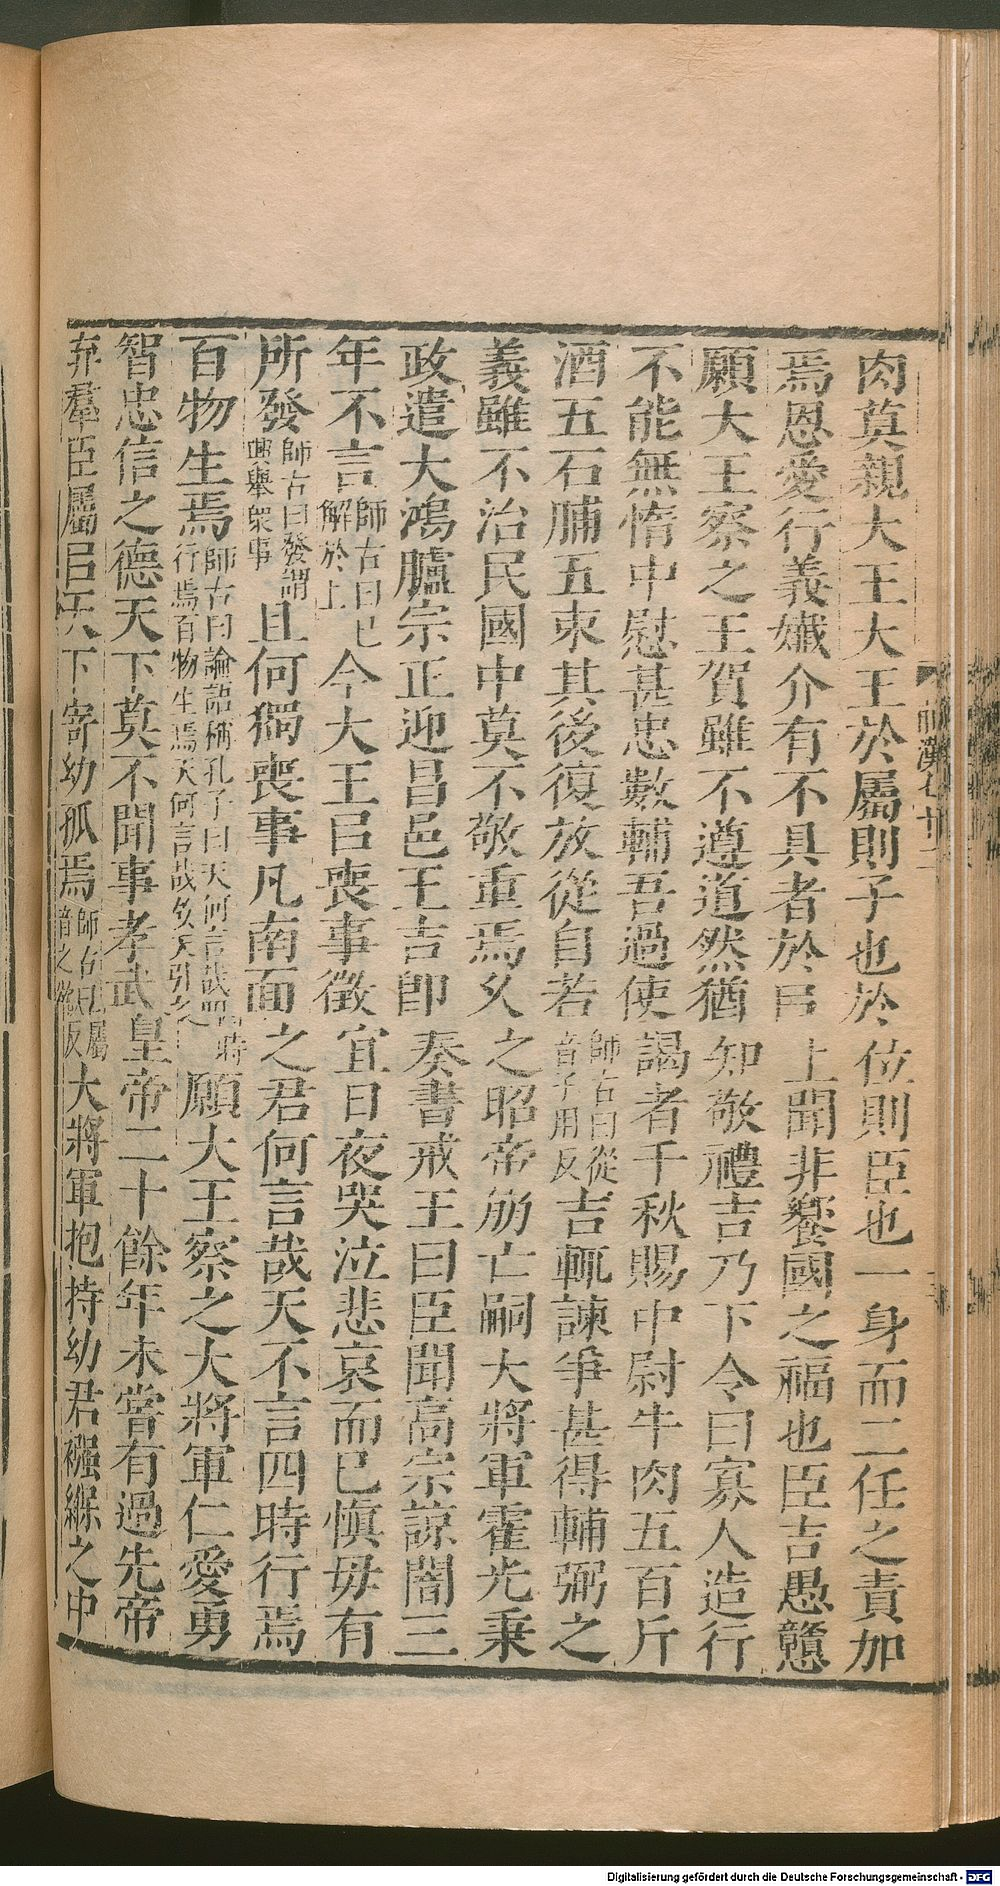 肉莫親大王大王於屬則子也於位則臣也一身而二任之責加
焉恩愛行義孅介有不具者於㠯上聞非饗國之福也臣吉愚戇
願大王察之王賀雖不遵道然猶知敬禮吉乃下令曰寡人造行
不能無惰中慰甚忠數輔吾過使謁者千秋賜中尉牛肉五百斤
酒五石脯五束其後復放從自若師古曰從音子用反吉輒諫爭甚得輔弼之
義雖不治民國中莫不敬重焉乆之昭帝崩亡嗣大將軍霍光秉
政遣大鴻臚宗正迎昌邑王吉卽奏書戒王曰臣聞高宗諒闇三
年不言師古曰已解於上今大王㠯喪事徵宜日夜哭泣悲哀而已愼毋有
所發師古曰發謂興舉衆事且何獨喪事凡南面之君何言哉天不言四時行焉
百物生焉師古曰論語稱孔子曰天何言哉四時行焉百物生焉天何言哉故吉引之願大王察之大將軍仁愛勇
智忠信之德天下莫不聞事孝武皇帝二十餘年未嘗有過先帝
弃羣臣屬㠯天下寄幼孤焉師古曰屬音之欲反大將軍抱持幼君襁緥之中
前漢七十二
Digitalisierung gefördert durch die Deutsche Forschungsgemeinschaft - DFG